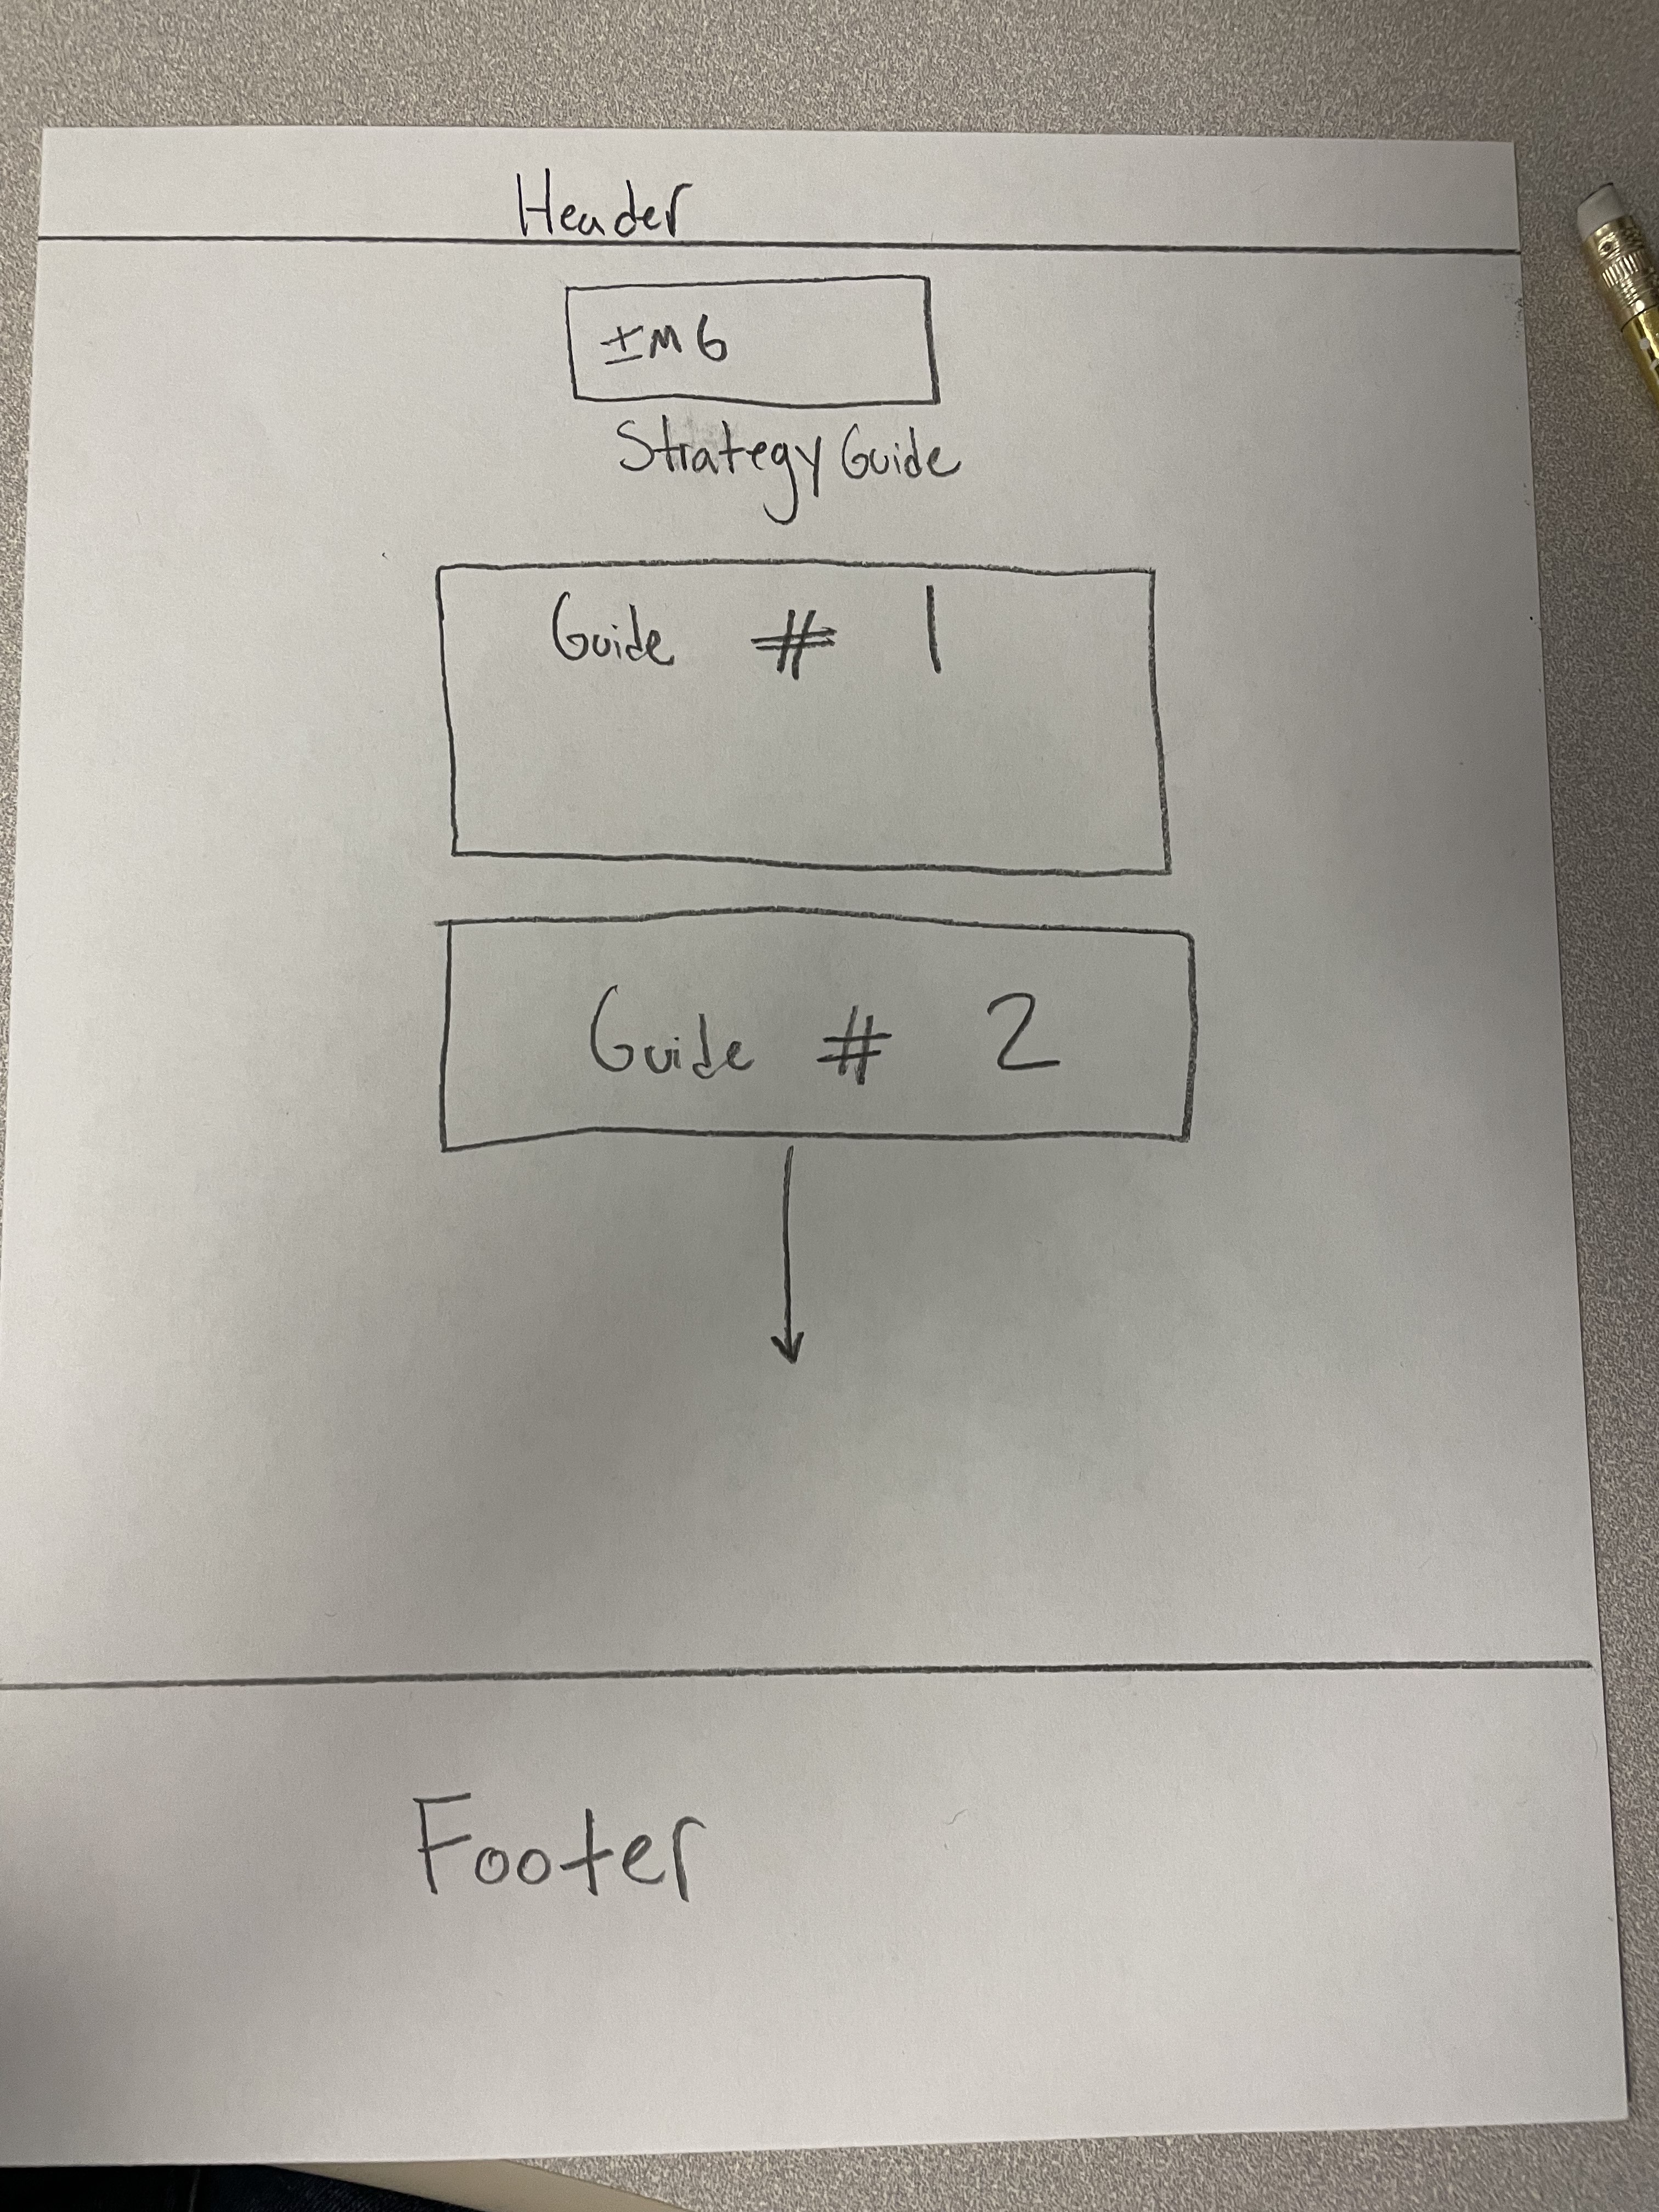 Header
IMG
Strategy Guide
Guide # 1
Guide # 2
Footer